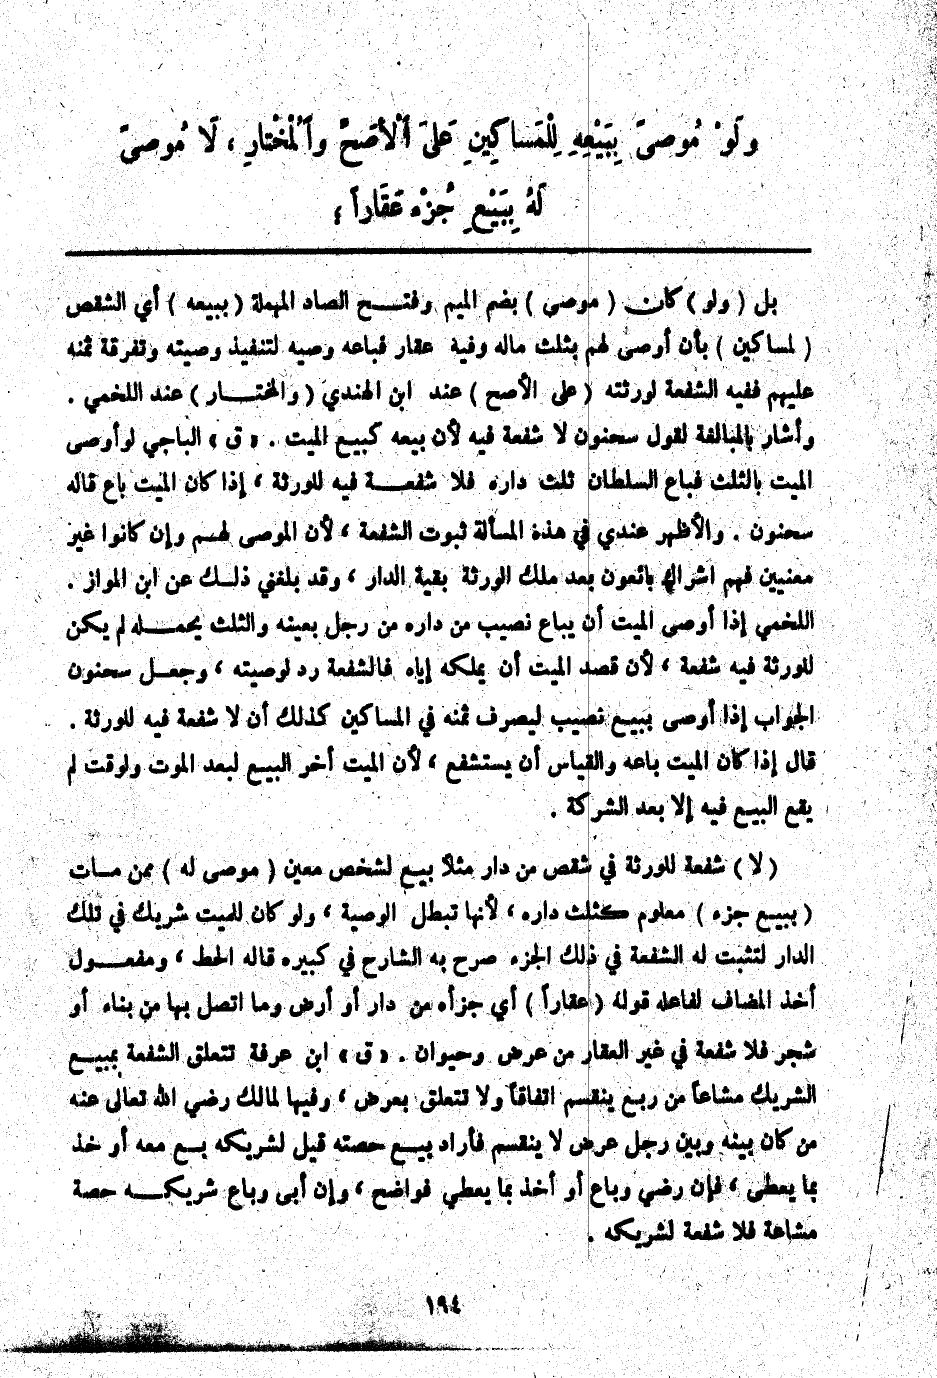 ولَوْ مُوصىً بِبَيْعِهِ لِلْمَساكِينِ عَلىَ اَلْأَصَحِّ واَلْمُخْتارِ ، لَا مُوصىً
لَهُ بِبَيْعِ جُزْء عَقَاراً ؛
بل ( ولو ) كان ( موصى ) بضم الميم وفتح الصاد المهملة ( ببيعه ) أي الشقص
( لمساكين ) بأن أوصى لهم بثلث ماله وفيه عقار فباعه وصيه لتنفيذ وصيته وتفرقة ثمنه
عليهم ففيه الشفعة لورثته ( على الأصح ) عند ابن الهندي ( والمختار ) عند اللخمي .
وأشار بالمبالغة لقول سحنون لا شفعة فيه لأن بيعه كبيع الميت . « ق » الباجي لو أوصى
الميت بالثلث فباع السلطان ثلث داره فلا شفعة فيه للورثة ، إذا كان الميت باع قاله
سحنون . والأظهر عندي في هذه المسألة ثبوت الشفعة ، لأن الموصى لهم وإن كانوا غير
معنيين فهم اشراك بائعون بعد ملك الورثة بقية الدار ، وقد بلغني ذلك عن ابن المواز .
اللخمي إذا أوصى الميت أن يباع نصيب من داره من رجل بعينه والثلث يحمله لم يكن
للورثة فيه شفعة ، لأن قصد الميت أن يملكه إياه فالشفعة رد لوصيته ، وجعل سحنون
الجواب إذا أوصى ببيع نصيب ليصرف ثمنه في المساكين كذلك أن لا شفعة فيه للورثة .
قال إذا كان الميت باعه والقياس أن يستشفع ، لأن الميت أخر البيع لبعد الموت ولوقت لم
يقع البيع فيه إلا بعد الشركة .
( لا ) شفعة للورثة في شقص من دار مثلا بيع لشخص معين ( موصى له ) ممن مات
( ببيع جزء ) معلوم كثلث داره ، لأنها تبطل الوصية ، ولو كان للميت شريك في تلك
الدار لتثبت له الشفعة في ذلك الجزء صرح به الشارح في كبيره قاله الحط ، ومفعول
أخذ المضاف لفاعله قوله ( عقاراً ) أي جزأه من دار أو أرض وما اتصل بها من بناء أو
شجر فلا شفعة في غير العقار من عرض وحيوان . « ق » ابن عرفة تتعلق الشفعة بمبيع
الشريك مشاعاً من ربع ينقسم اتفاقاً ولا تتعلق بعرض ، وفيها لمالك رضي الله تعالى عنه
من كان بينه وبين رجل عرض لا ينقسم فأراد بيع حصته قيل لشريكه بع معه أو خذ
بما يعطى ، فإن رضي وباع أو أخذ بما يعطي فواضح ، وإن أبى وباع شريكه حصة
مشاعة فلا شفعة لشريكه .
١٩٤